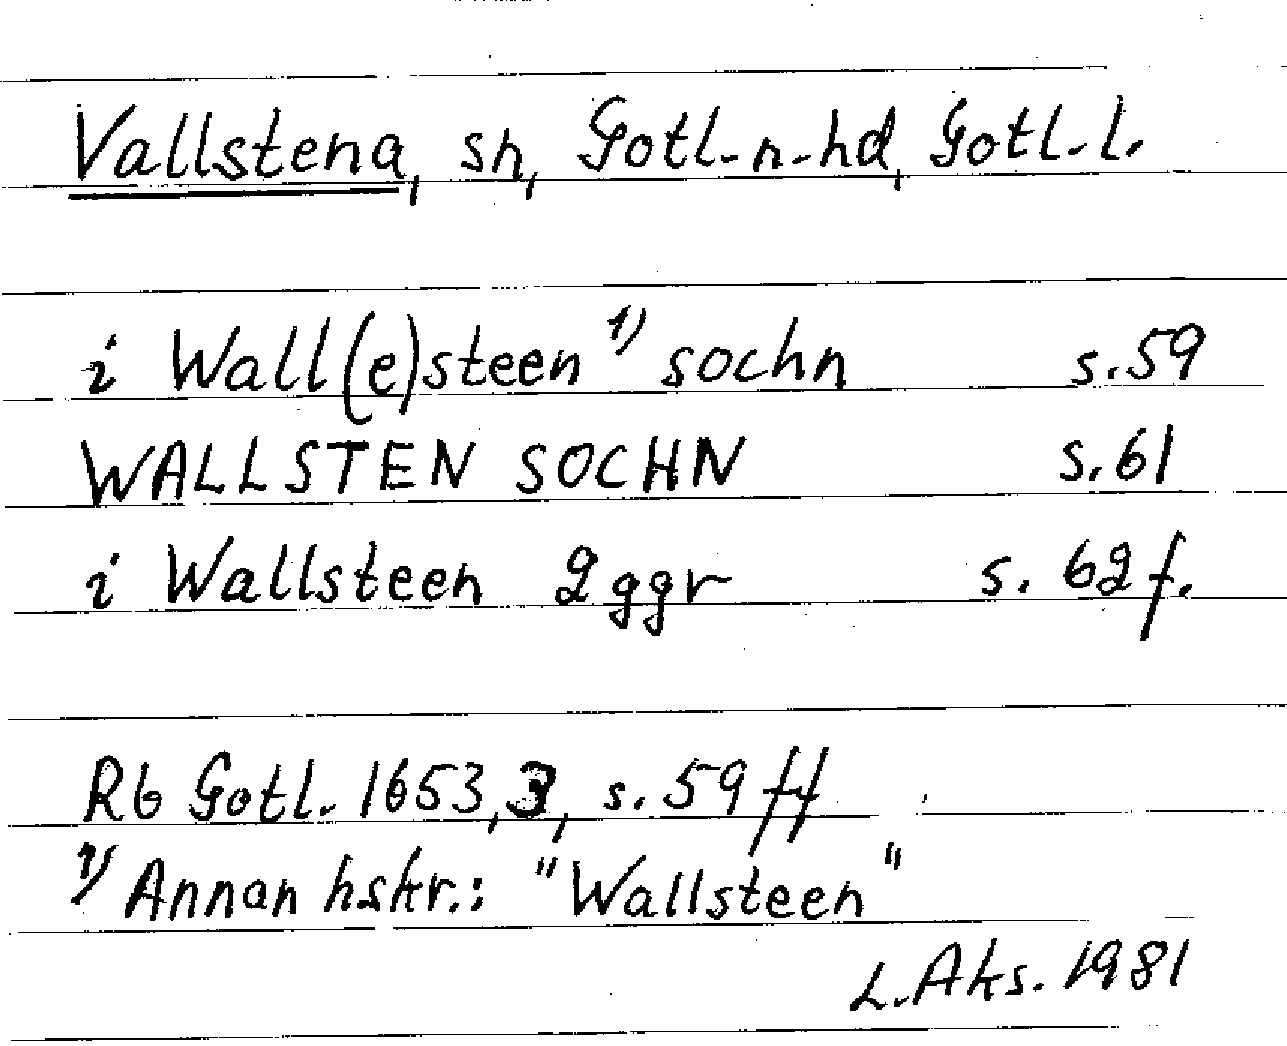 Vallstena, sn, Gotl. n. hd, Gotl. l.
i Wall(e)steen 1) sochn s. 59
WALLSTEN SOCHN s. 61
i Wallsteen 2 ggr s. 62 f.
Rb Gotl. 1653, 3, s. 59 ff
1) Annan hskr.: "Wallsteen"
L. Aks. 1981